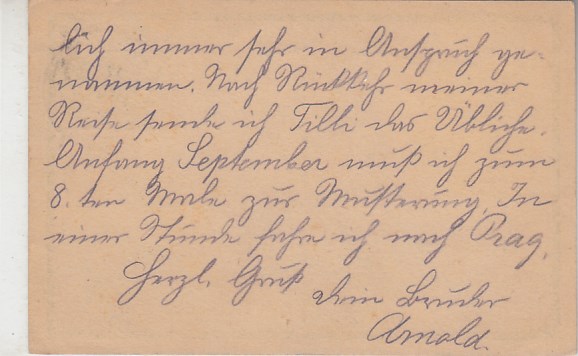 lich immer sehr in Anspruch ge-
nommen. Nach Rückkehr meiner
Reise sende ich Tilli das Übliche.
Anfang September muß ich zum
8. ten Male zur Musterung. In
einer Stunde fahre ich nach Prag.
Herzl. Gruß
Dein Bruder
Arnold.